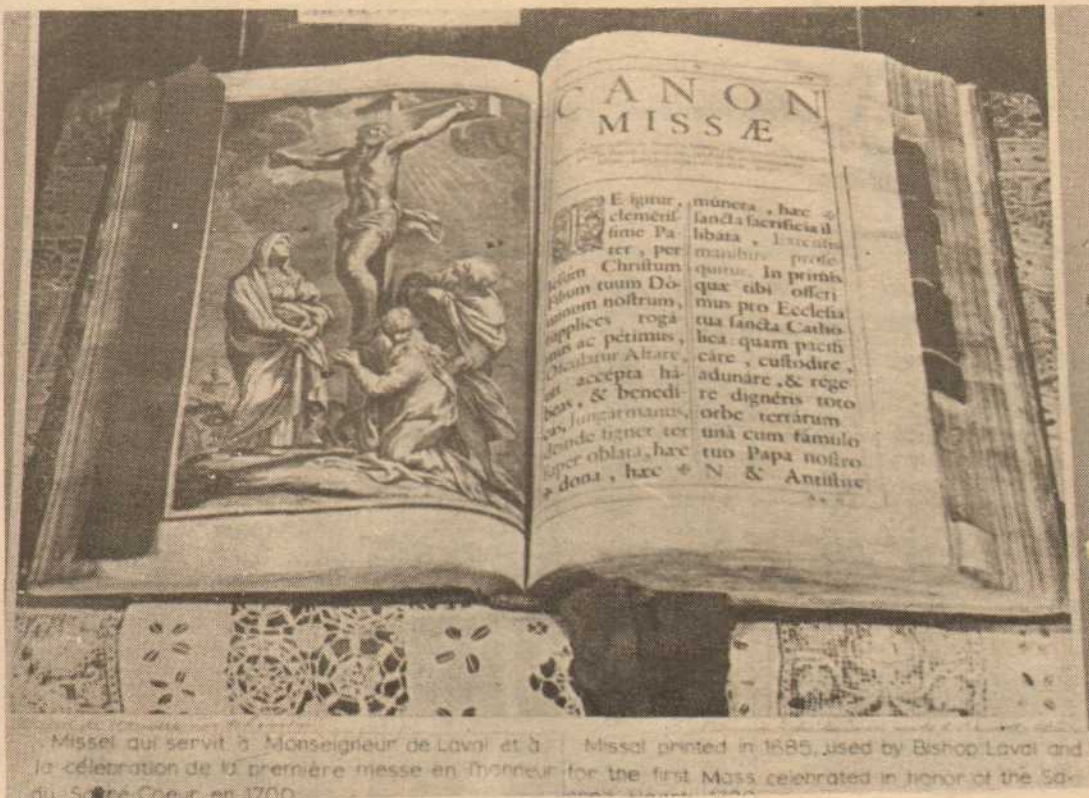 CANON
MISSÆ
E igitur,
clementiſ-
ſime Pa-
ter, per
Jeſum Chriſtum
Filium tuum Dó-
minum noſtrum,
ſupplices rogá-
mus ac pétimus,
Oſculatur Altare,
uti accépta há-
beas, & benedí-
cas, Jungit manus,
deinde ſignat ter
ſuper oblata, hæc
✠ dona, hæc ✠
múnera, hæc ✠
ſancta ſacrificia il
libata, Extenſis
manibus proſe-
quitur. In primis
quæ tibi offeri
mus pro Eccleſia
tua ſancta Catho
lica: quam pacifi
cáre, cuſtodíre,
adunáre, & rége
re dignéris toto
orbe terrárum
unà cum fámulo
tuo Papa noſtro
N & Antiſtite
Missel qui servit à Monseigneur de Laval et à
la célébration de la première messe en l'honneur
du Sacré-Coeur en 1700
Missal printed in 1685, used by Bishop Laval and
for the first Mass celebrated in honor of the Sa-